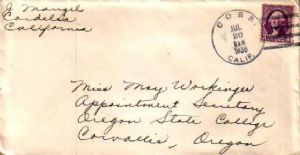 J. Mangel
Cordelia
California
COBB.
JUL
20
8AM
1936
CALIF.
Miss May Workinger
Appointment Secretary
Oregon State College
Corvallis, Oregon